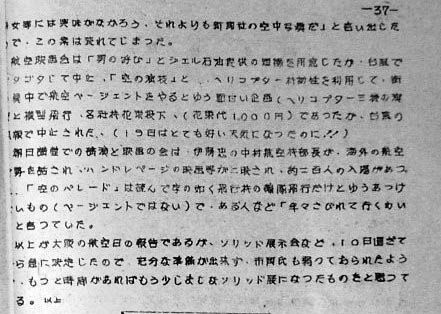 —37—
女等には興味がなかろう、それよりも新聞社の空中写真だ」と言い出した
で、この案は流れてしまった。
航空映画会は「男の叫び」とシェル石油提供の 用意したが、台風で
タゴタして中止、「空の演技」と 、ヘリコプター 利用して、街
中で航空ページェントをやるとゆう面白い企画(ヘリコプター三機の
と模型飛行、各社共花束投下、(花束代1,000円)であったが、台風の
で中止された、(19日はとても好い天気になったのに!!)
朝日講堂での講演と映画の会は、伊藤忠の中村航空機部長が、海外の航空
ハンドレページの映画等が上映され、約二百人の入場があつ
「空のパレード」は読んで字の如く飛行機の編隊飛行だけとゆうあっけ
いもの(ページェントではない)で、ある人など「年々さびれて行くわい
と言つてした。
以上が大阪の航空日の報告であるが、ソリッド展示会など、10日過ぎて
ら急に決定したので、充分な準備が出来ず、市岡氏も弱っておられたよう
、もっと時間があればもう少しましなソリッド展になつたものをと思つて
る。以上